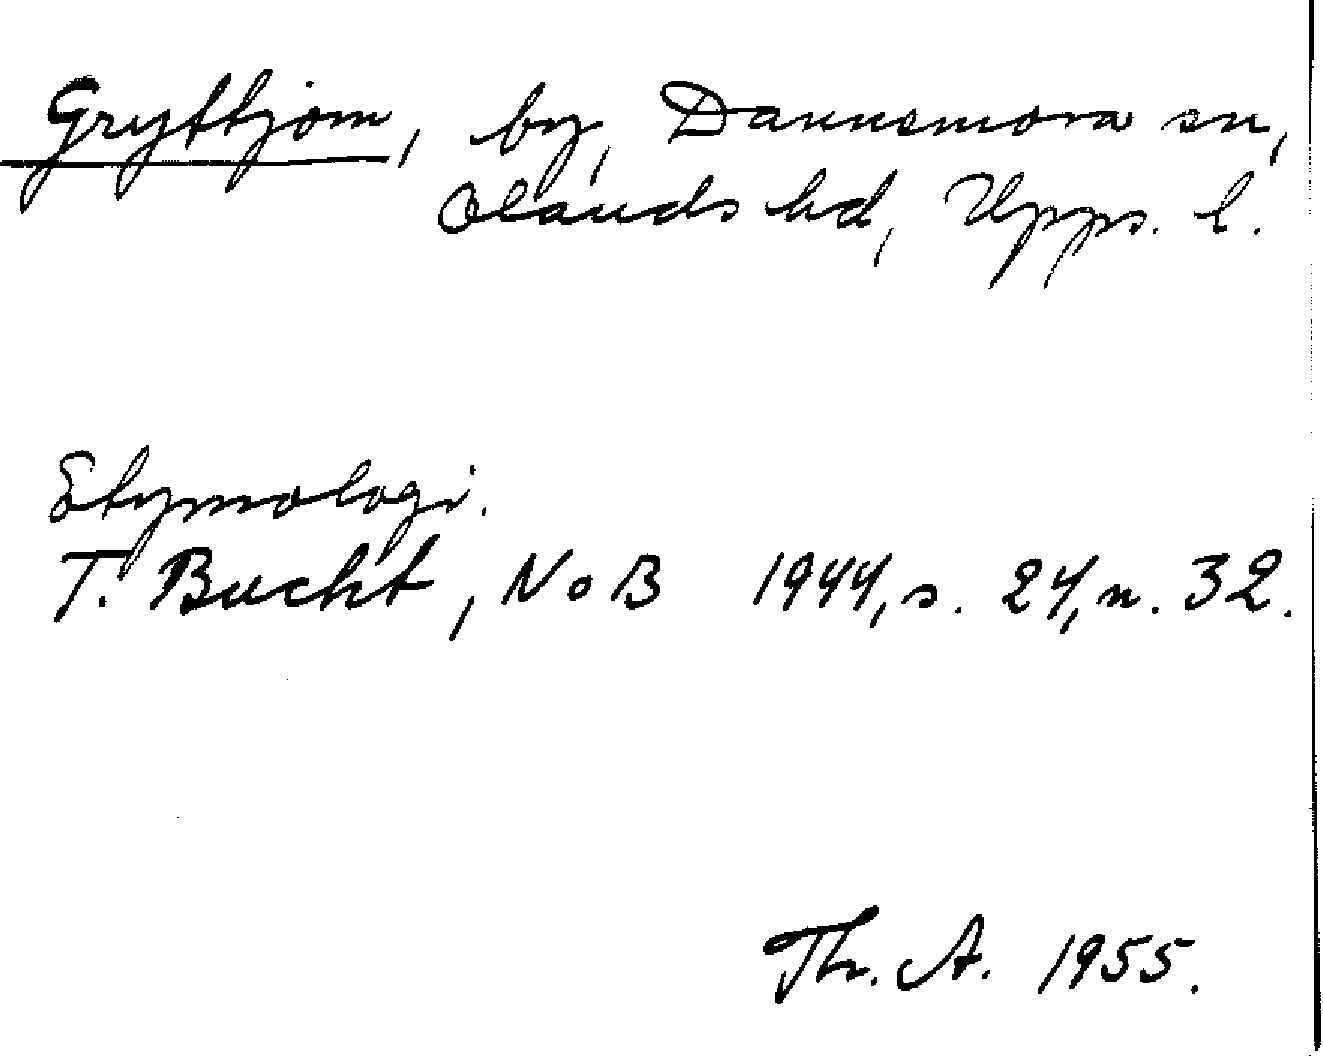 Gryttjom, by, Dannemora sn,
Olands hd, Upps. l.
Etymologi.
T. Bucht, NoB 1944, s. 24, n. 32.
Th. A. 1955.